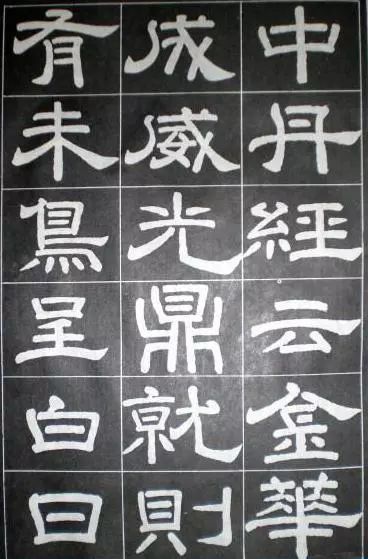 中丹經云金華
成威光鼎就則
有未鳥呈白曰